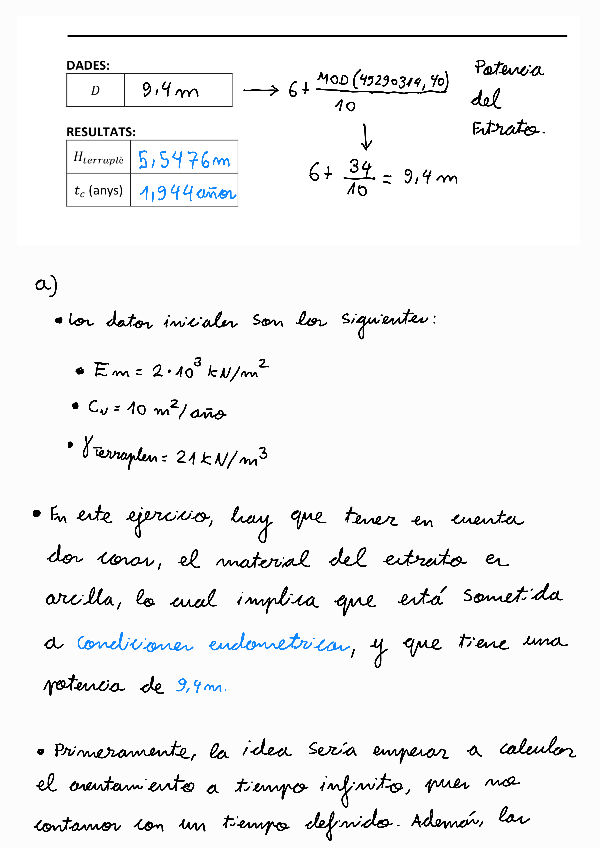 DADES:
D 9,4 m → 6+ MOD(49290314, 40)/10 Potencia del Estrato.
↓
6+ 34/10 = 9,4 m
RESULTATS:
H_terraplè 5,5476 m
t_c (anys) 1,944 años
a)
• Los datos iniciales son los siguientes:
• Em = 2·10³ kN/m²
• Cv = 10 m²/año
• γ_terraplen = 21 kN/m³
• En este ejercicio, hay que tener en cuenta
dos cosas, el material del estrato es
arcilla, lo cual implica que está sometida
a condiciones endometricas, y que tiene una
potencia de 9,4 m.
• Primeramente, la idea sería empezar a calcular
el asentamiento a tiempo infinito, pues no
contamos con un tiempo definido. Además, las